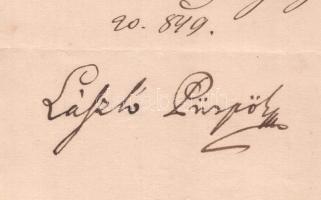 20. 849.
László Püspök